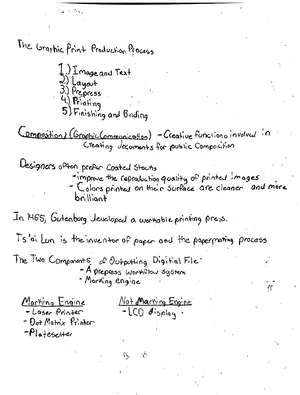 The Graphic Print Production Process
1.) Image and Text
2.) Layout
3.) Prepress
4.) Printing
5.) Finishing and Binding
Composition / (Graphic Communication) - Creative functions involved in
Creating documents for public Composition
Designers often prefer coated stocks
- improve the reproduction quality of printed images
- Colors printed on their surface are cleaner and more
brilliant
In 1455, Gutenborg developed a workable printing press.
Ts'ai Lun is the inventor of paper and the papermaking process
The Two Components of Outputting Digitial File:
- A prepress workflow system
- Marking engine
Marking Engine
- Laser Printer
- Dot Matrix Printer
- Platesetter
Not Marking Engine
- LCD display